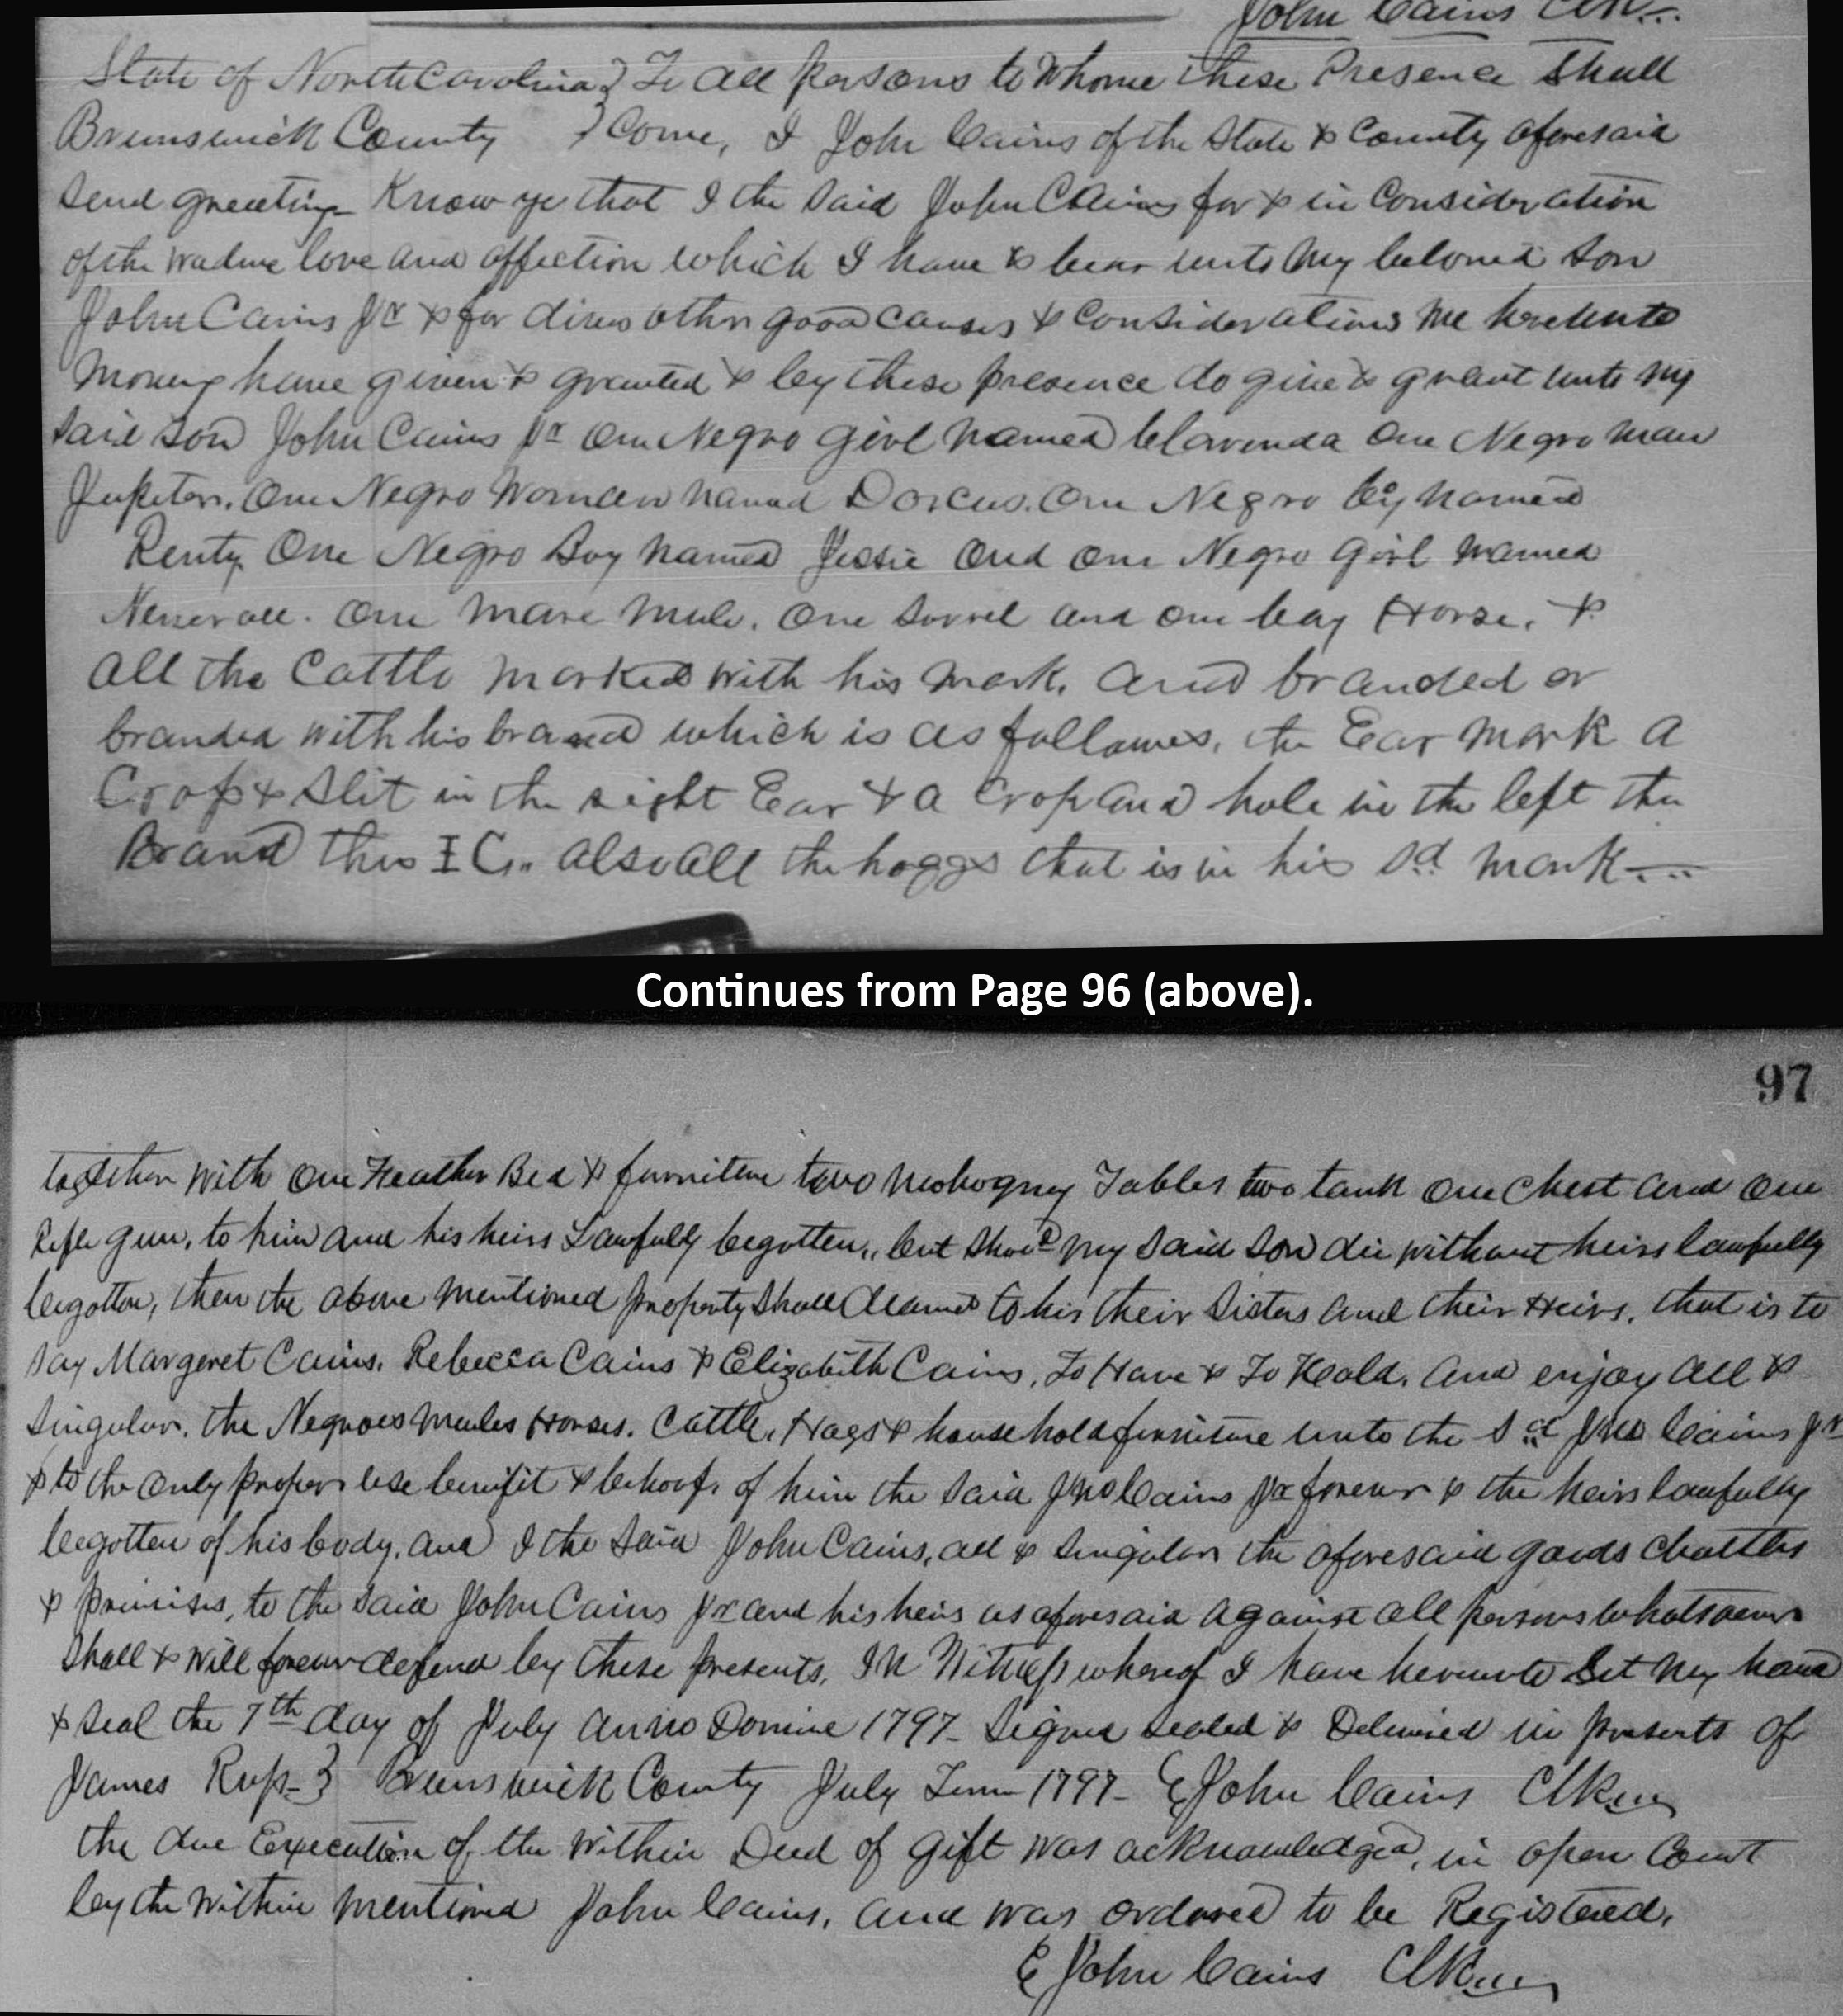 John Cains Clk
State of North Carolina } To all persons to Whome these Presence Shall
Brunswick County } Come, I John Cains of the State & County aforesaid
Send greeting Know ye that I the Said John Cains for & in Consideration
of the love and affection which I have & bear unto My beloved Son
John Cains Jr & for divers other good causes & Considerations Me hereunto
Moveing have given & granted & by these presence do give & grant unto My
Said Son John Cains Jr One Negro girl Named Clarinda One Negro Man
Jupiter, One Negro Woman Named Dorcus. One Negro by Named
Renty One Negro Boy Named Jessie and one Negro Girl Named
One Mare Mule. One Sorrel and one bay Horse, &
all the Cattle Marked with his Mark, and branded or
branded with his brand which is as follows, the Ear Mark A
Crop & Slit in the right Ear & a Crop and hole in the left the
Brand thus I C. also all the hoggs that is in his Sd Mark
Continues from Page 96 (above).
97
together With One Feather Bed & furniture two Mohogney Tables two tank One Chest and One
Rifle gun, to him and his heirs Lawfully begotten, but Shoud My Said Son die without heirs lawfully
begotton, then the above Mentioned property Shall to his their Sisters and their Heirs, that is to
Say Margeret Cains, Rebecca Cains & Elizabeth Cains, To Have & To Hold, And enjoy All &
Singular, the Negroes Mules Horses, Cattle, Hogs & household furniture unto the Sd Jno Cains Jr
& to the only proper use benifit & behoof, of him the Said Jno Cains Jr forever & the heirs lawfully
begotten of his body, and I the Said John Cains, all & Singular the aforesaid goods Chattles
& primises, to the Said John Cains Jr and his heirs as aforesaid against all persons whatsoever
Shall & Will forever defend by these presents, In Witness whereof I have hereunto Set My hand
& Seal the 7th day of July Anno Domine 1797- Signed Sealed & Delivered in presents of
James Russ } Brunswick County July Term 1797- John Cains Clk
the due Execution of the Within Deed of Gift was acknowledged, in open Court
by the Within Mentioned John Cains, and was ordered to be Registered,
John Cains Clk